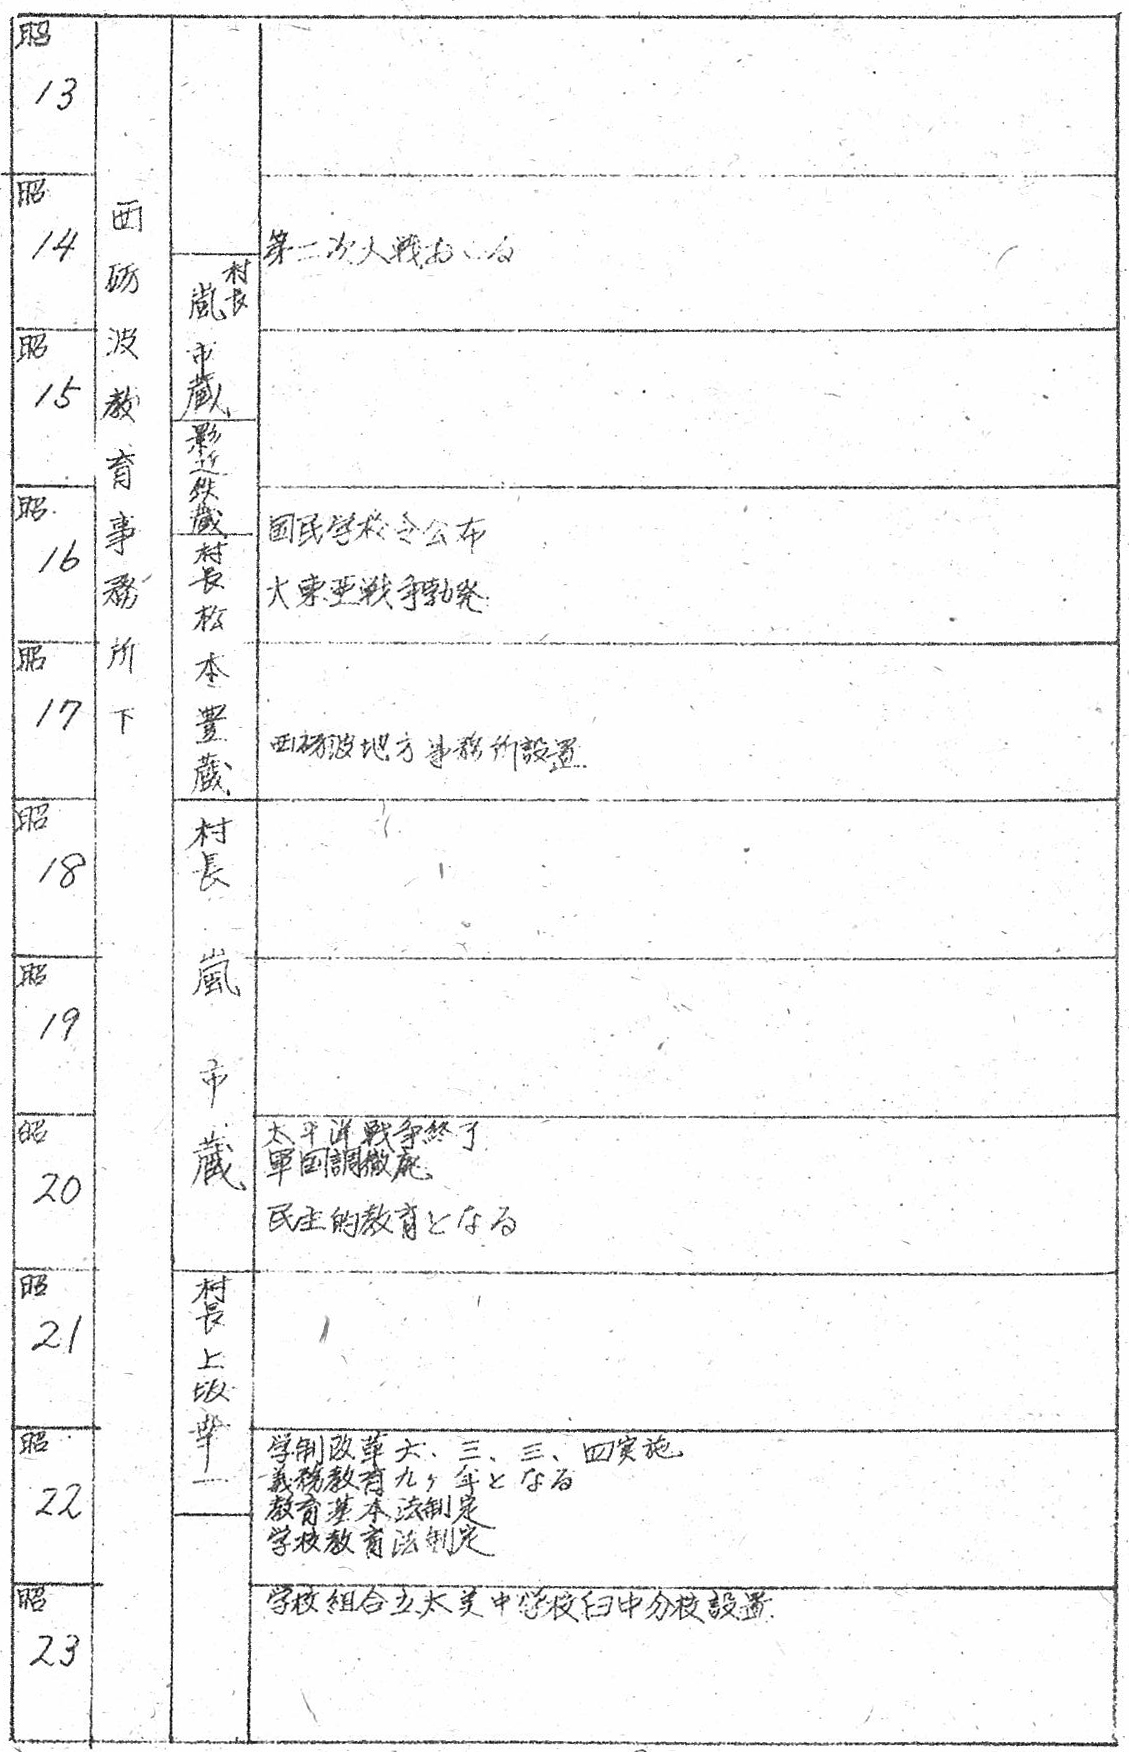 昭
13
昭
14
昭
15
昭
16
昭
17
昭
18
昭
19
昭
20
昭
21
昭
22
昭
23
西砺波教育事務所下
村長
嵐市蔵
影近鉄蔵
村長松本豊蔵
村長 嵐市蔵
村長上坂幸一
第二次大戦おこる
国民学校令公布
大東亜戦争勃発
西砺波地方事務所設置
太平洋戦争終了
軍国調撤廃
民主的教育となる
学制改革六、三、三、四実施
義務教育九ヶ年となる
教育基本法制定
学校教育法制定
学校組合立太美中学校臼中分校設置